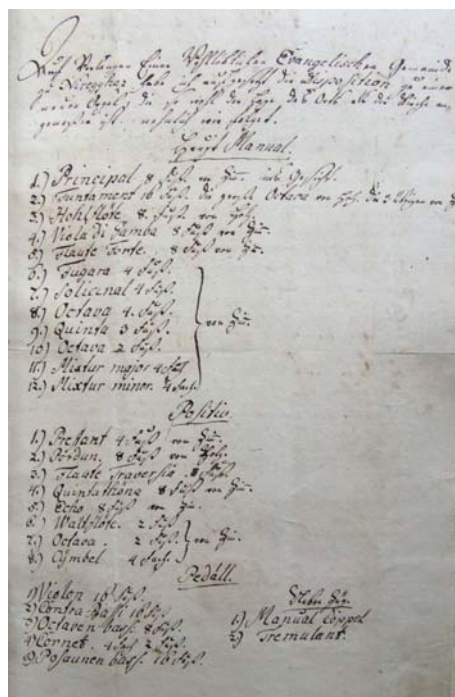 Auf Verlangen Einer Wohllöblichen Evangelischen Gemeinde
zu habe ich aufgesetzt die Disposition zu einer
neuen Orgel, die so wohl der Lage des Orts als der Kirche an-
gemessen ist nehmlich wie folget.
Haupt Manual.
1.) Principal 8 Fuß von Zin. ins Gesicht.
2.) 16 Fuß. die große Octava von Holz. die übrigen von
3.) Hohlflöte 8. Fuß von Holz.
4.) Viola Di Gamba 8 Fuß von Zin.
5.) Flaute Forte. 8 Fuß von Zin.
6.) Fugara 4 Fuß.
7.) Solicinal 4 Fuß.
8.) Octava 4. Fuß.
9.) Quinta 3 Fuß.
von Zin.
10.) Octava 2 Fuß.
11.) Mixtur major 4 fach
12.) Mixtur minor. 4 fach.
Positiv.
1.) Prestant 4 Fuß von Zin.
2.) Pordun. 8 Fuß von Holz.
3.) Flaute Traverso. 8 Fuß.
4.) Quintathöna 8 Fuß von Zin.
5.) Echo 8 Fuß von Zin.
6.) Waltflöte. 2 Fuß
7.) Octava. 2 Fuß. von Zin.
8.) Cymbel 4 fach.
Pedall.
1) Violon 16 Fuß.
2) Contra-Bass 16 Fuß.
3) Octaven bass. 8 Fuß.
4) Cornet. 4 fach 2 Fuß.
5) Posaunen bass. 16 Fuß.
Neben Züg.
1.) Manual Coppel
2) Tremulant.